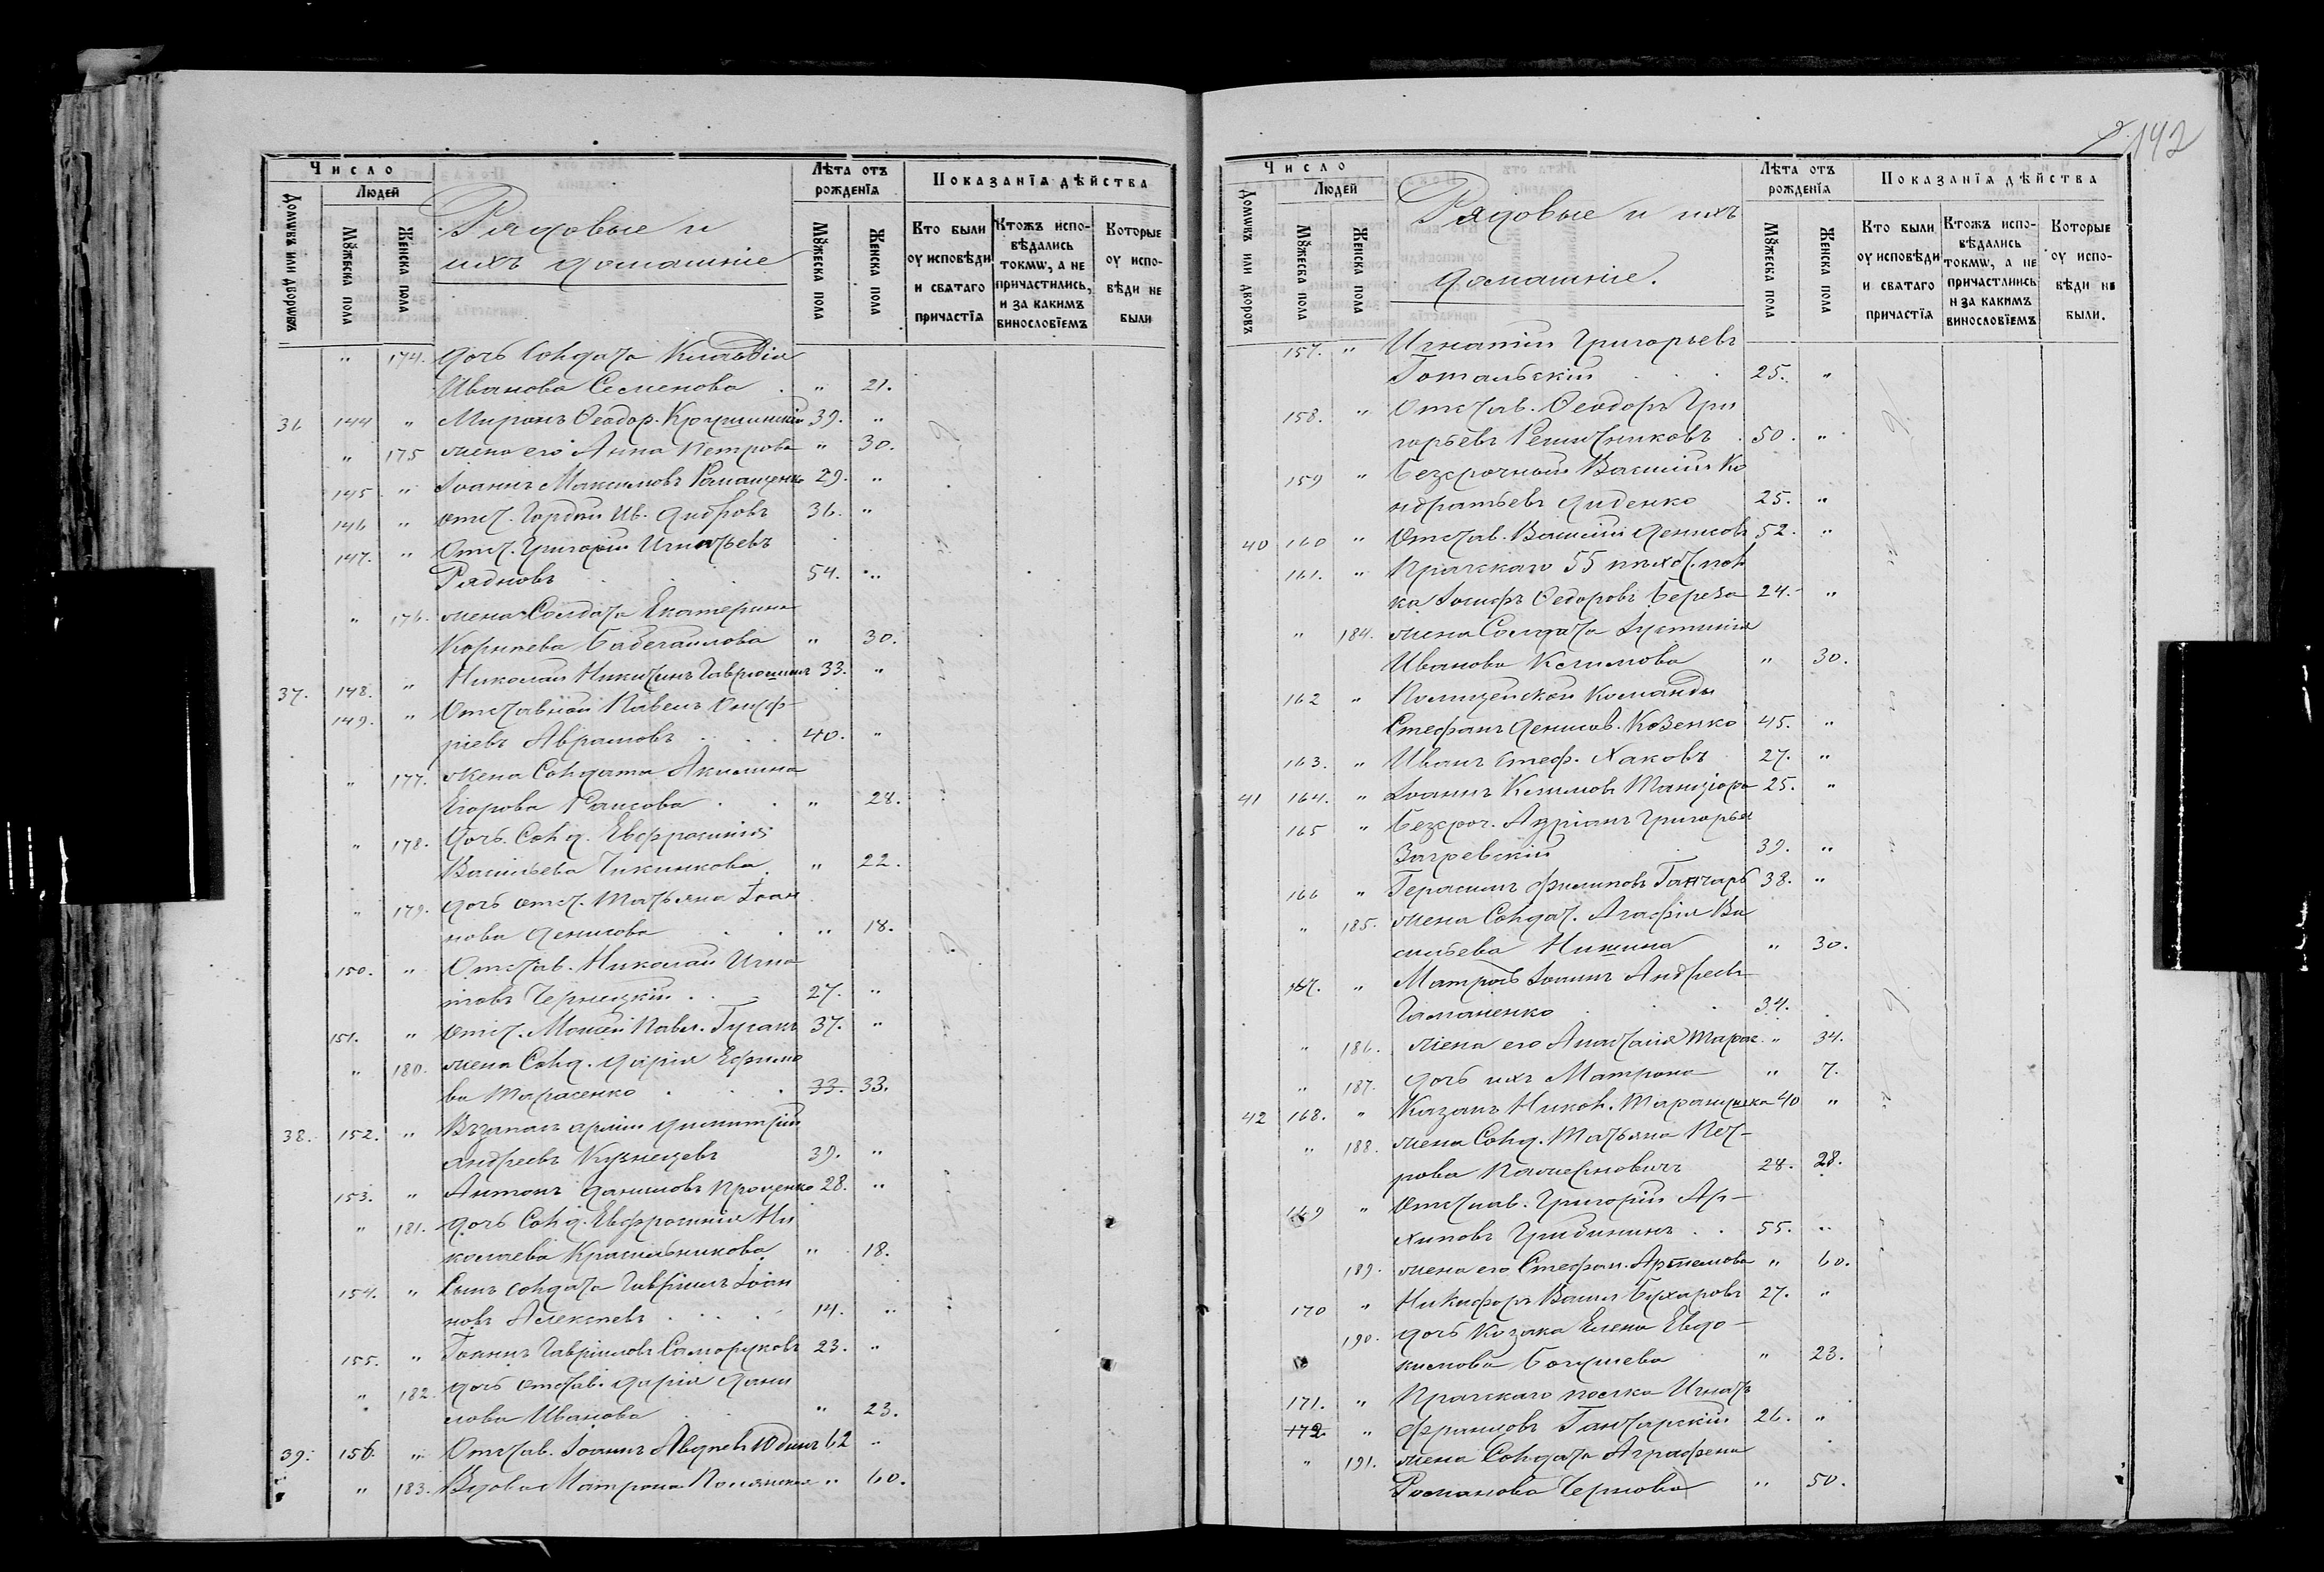 Число
Людей
Домωвъ или дворωвъ
Мꙋжеска пола
Женска пола
Рядовые и
ихъ домашніе
Лѣта отъ
рожденїѧ
Мꙋжеска пола
Женска пола
Показанїѧ дѣйства
Кто были
оу исповѣди
и свѧтаго
причастїѧ
Ктожъ испо-
вѣдались
токмω, а не
причастились,
и за какимъ
винословїемъ
Которые
оу испо-
вѣди не
были
" 174. Дочь Солдата Клавдія
Иванова Семенова " 21.
36 144 " Миронъ Ѳеодор. 39. "
" 175 жена его Анна Петрова " 30.
145 " Іоаннъ Максимовъ Ромащенко 29. "
146 " Отст. Гордій Ив. 36. "
147. " Отст. Григорій Игнатьевъ
Рядновъ 54. "
" 176. жена Солдата Екатерина
Корнѣева " 30.
37. 148. " Николай Никитинъ Гаврюшинъ 33. "
149. " Отставной Павелъ Онуф-
ріевъ Аврамовъ 40. "
" 177. жена Солдата Акилина
Егорова " 28.
" 178. Дочь Солд. Евфросинія
Васильева Чикинкова " 22.
" 179. дочь отст. Татьяна Іоан
нова Денисова " 18.
150. " Отстав. Николай Игна
товъ Чернецкій 27. "
151. " Отст. Моисей Павл. 37. "
" 180. жена Солд. Дарія Ефимо
ва Тарасенко 33. 33.
38. 152. " Въ запасъ арміи Димитрій
Андреевъ Кузнецевъ 39. "
153. " Антонъ Даниловъ Проценко 28. "
" 181. дочь Солд. Евфросинія Ни
колаева Красильникова " 18.
154. " Сынъ солдата Гавріилъ Іоан
новъ Алексѣевъ 14. "
155. " Іоаннъ Гавріиловъ Саморуковъ 23. "
" 182. дочь отстав. Дарія Дани
лова Иванова " 23.
39. 156. " Отстав. Іоаннъ Авдѣевъ Юдинъ 62 "
" 183. Вдова Матрона " 60.
142
Число
Людей
Домωвъ или дворовъ
Мꙋжеска пола
Женска пола
Рядовые и ихъ
домашніе.
Лѣта отъ
рожденїѧ
Мꙋжеска пола
Женска пола
Показанїѧ дѣйства
Кто были
оу исповѣди
и свѧтаго
причастїѧ
Ктожъ испо-
вѣдались
токмω, а не
причастились
и за какимъ
винословїемъ
Которые
оу испо-
вѣди не
были.
157. " Игнатій Григорьевъ
Готальскій 25. "
158. " Отстав. Ѳеодоръ Гри
горьевъ Решетниковъ 50. "
159 " Безсрочный Василій Ко
ндратьевъ Диденко 25. "
40 160 " Отстав. Василій Денисовъ 52. "
161. " Пражскаго 55 пѣхот. пол
ка Іосифъ Ѳедоровъ Береза 24. "
" 184. жена Солдата Іустинія
Иванова Климова " 30.
162 " Полицейской Команды
Стефанъ Денисов. Козенко 45. "
163. " Иванъ Стеф. Хаковъ 27. "
41 164. " Іоаннъ Климовъ Танцюра 25. "
165 " Безсроч. Адріанъ Григорьев
Загревскій 39. "
166 " Герасимъ Филиповъ Ганчаръ 38. "
" 185. жена Солдат. Агафія Ва
сильева Нишина " 30.
167. " Матросъ Іоаннъ Андреевъ
Гапоненко 34.
" 186. жена его Анастасія Тарас. " 34.
" 187. дочь ихъ Матрона " 7.
42 168. " Казакъ Никол. Таранушка 40 "
" 188. жена Солд. Татьяна Пет-
рова 28. 28.
169 " Отстав. Григорій Ар-
хиповъ Грибининъ 55. "
189. жена его Стефан. Артемова " 60.
170 " Никифоръ Васил. Бухаровъ 27. "
190. дочь Козака Елена Евдо-
кимова Богушева " 23.
171. " Пражскаго полка Игнатъ
172 " Фроловъ Гантарскій 26. "
" 191. жена Солдата Аграфена
Романова Чернова " 50.